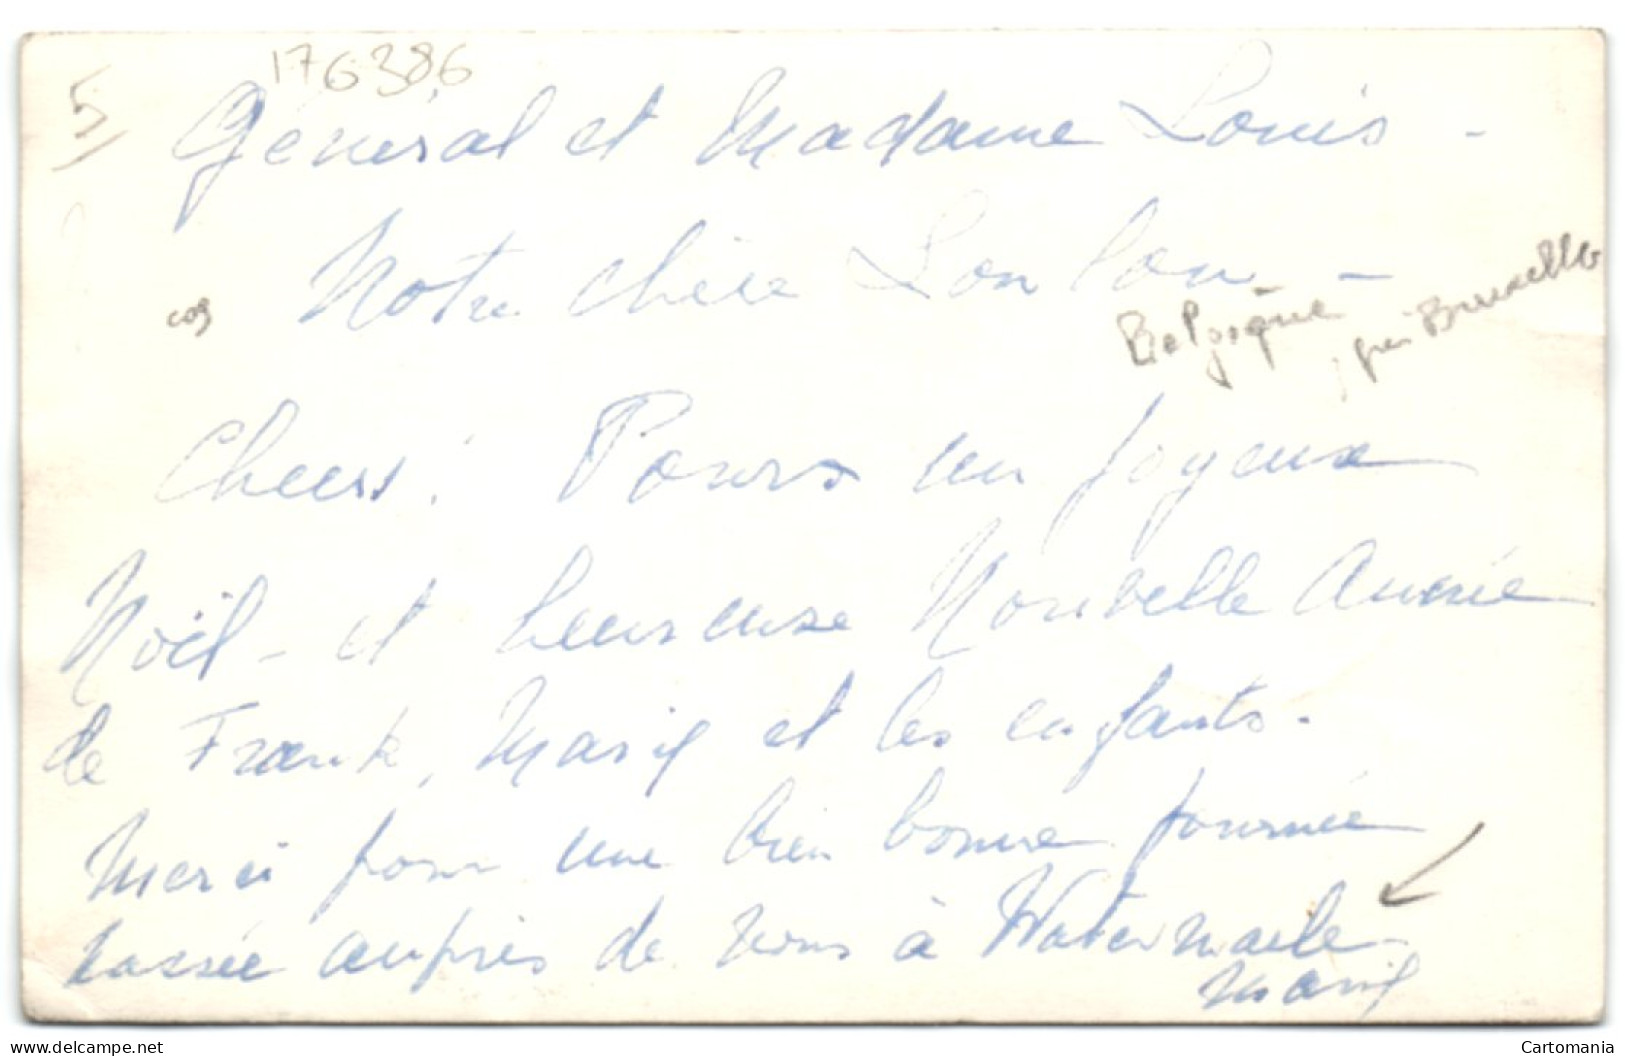 176386
5
Général et Madame Louis -
Notre chère Loulou -
cog
Belgique, près Bruxelles
Cheers! Pour un Joyeux
Noël - et heureuse Nouvelle Année
de Frank, Marif et les enfants.
Merci pour une bien bonne journée
passée auprès de vous à Watermaele
Marif
www.delcampe.net
Cartomania